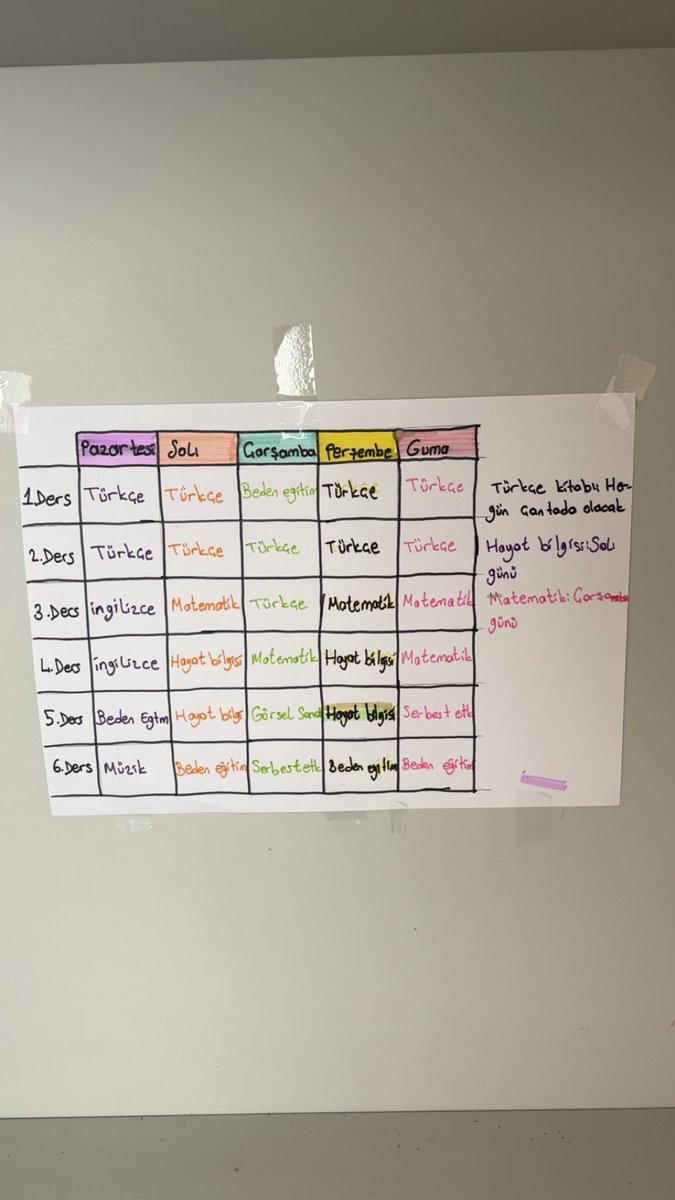 Pazartesi Salı Çarşamba Perşembe Cuma
1.Ders Türkçe Türkçe Beden egitim Türkçe Türkçe
2.Ders Türkçe Türkçe Türkçe Türkçe Türkçe
3.Ders ingilizce Matematik Türkçe Matematik Matematik
4.Ders ingilizce Hayat bilgisi Matematik Hayat bilgisi Matematik
5.Ders Beden Egtm Hayat bilgi Görsel Sanat Hayat bilgisi Serbest etk
6.Ders Müzik Beden eğitim Serbest etk Beden egitim Beden eğitim
Türkçe kitabı Her
gün Çantada olacak
Hayat bilgisi: Salı
günü
Matematik: Çarşamba
günü